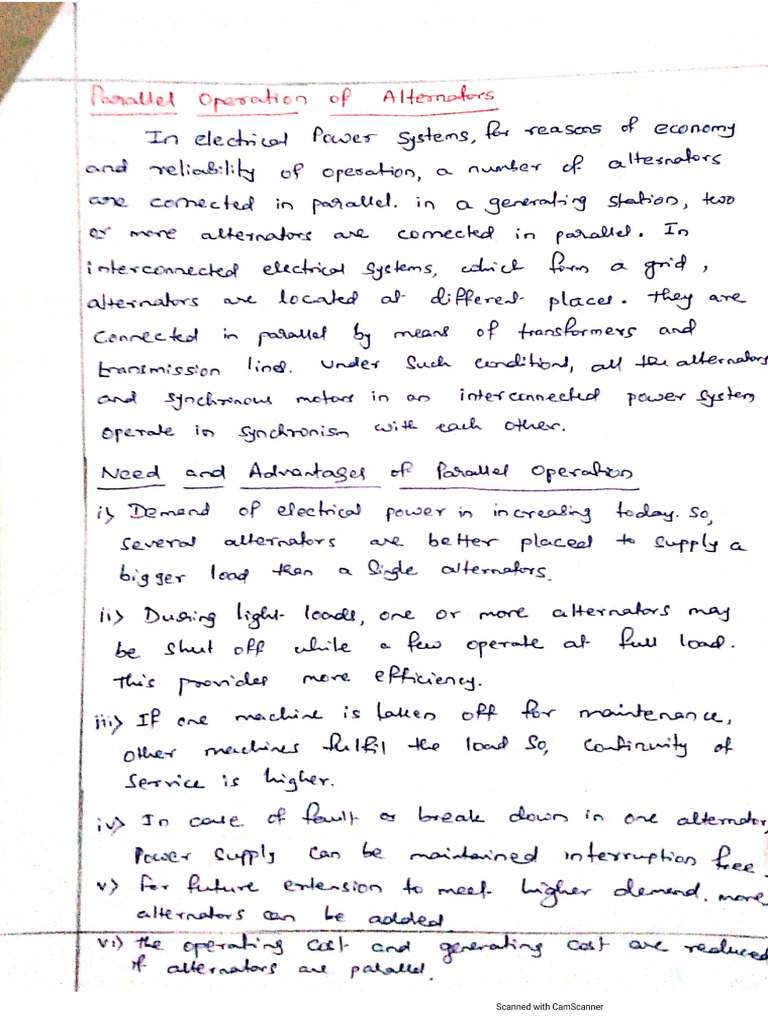 Parallel Operation of Alternators
In electrical Power Systems, for reasons of economy
and reliability of operation, a number of alternators
are connected in parallel. in a generating station, two
or more alternators are connected in parallel. In
interconnected electrical systems, which form a grid,
alternators are located at different places. They are
connected in parallel by means of transformers and
transmission lines. Under such conditions, all the alternators
and synchronous motors in an interconnected power system
operate in synchronism with each other.
Need and Advantages of Parallel Operation
i) Demand of electrical power in increasing today. So,
several alternators are better placed to supply a
bigger load than a single alternators.
ii) During light loads, one or more alternators may
be shut off while a few operate at full load.
This provides more efficiency.
iii) If one machine is taken off for maintenance,
other machines fulfil the load So, continuity of
service is higher.
iv) In case of fault or break down in one alternator,
Power supply can be maintained interruption free.
v) For future extension to meet higher demand. more
alternators can be added
vi) the operating cost and generating cost are reduced
if alternators are parallel.
Scanned with CamScanner